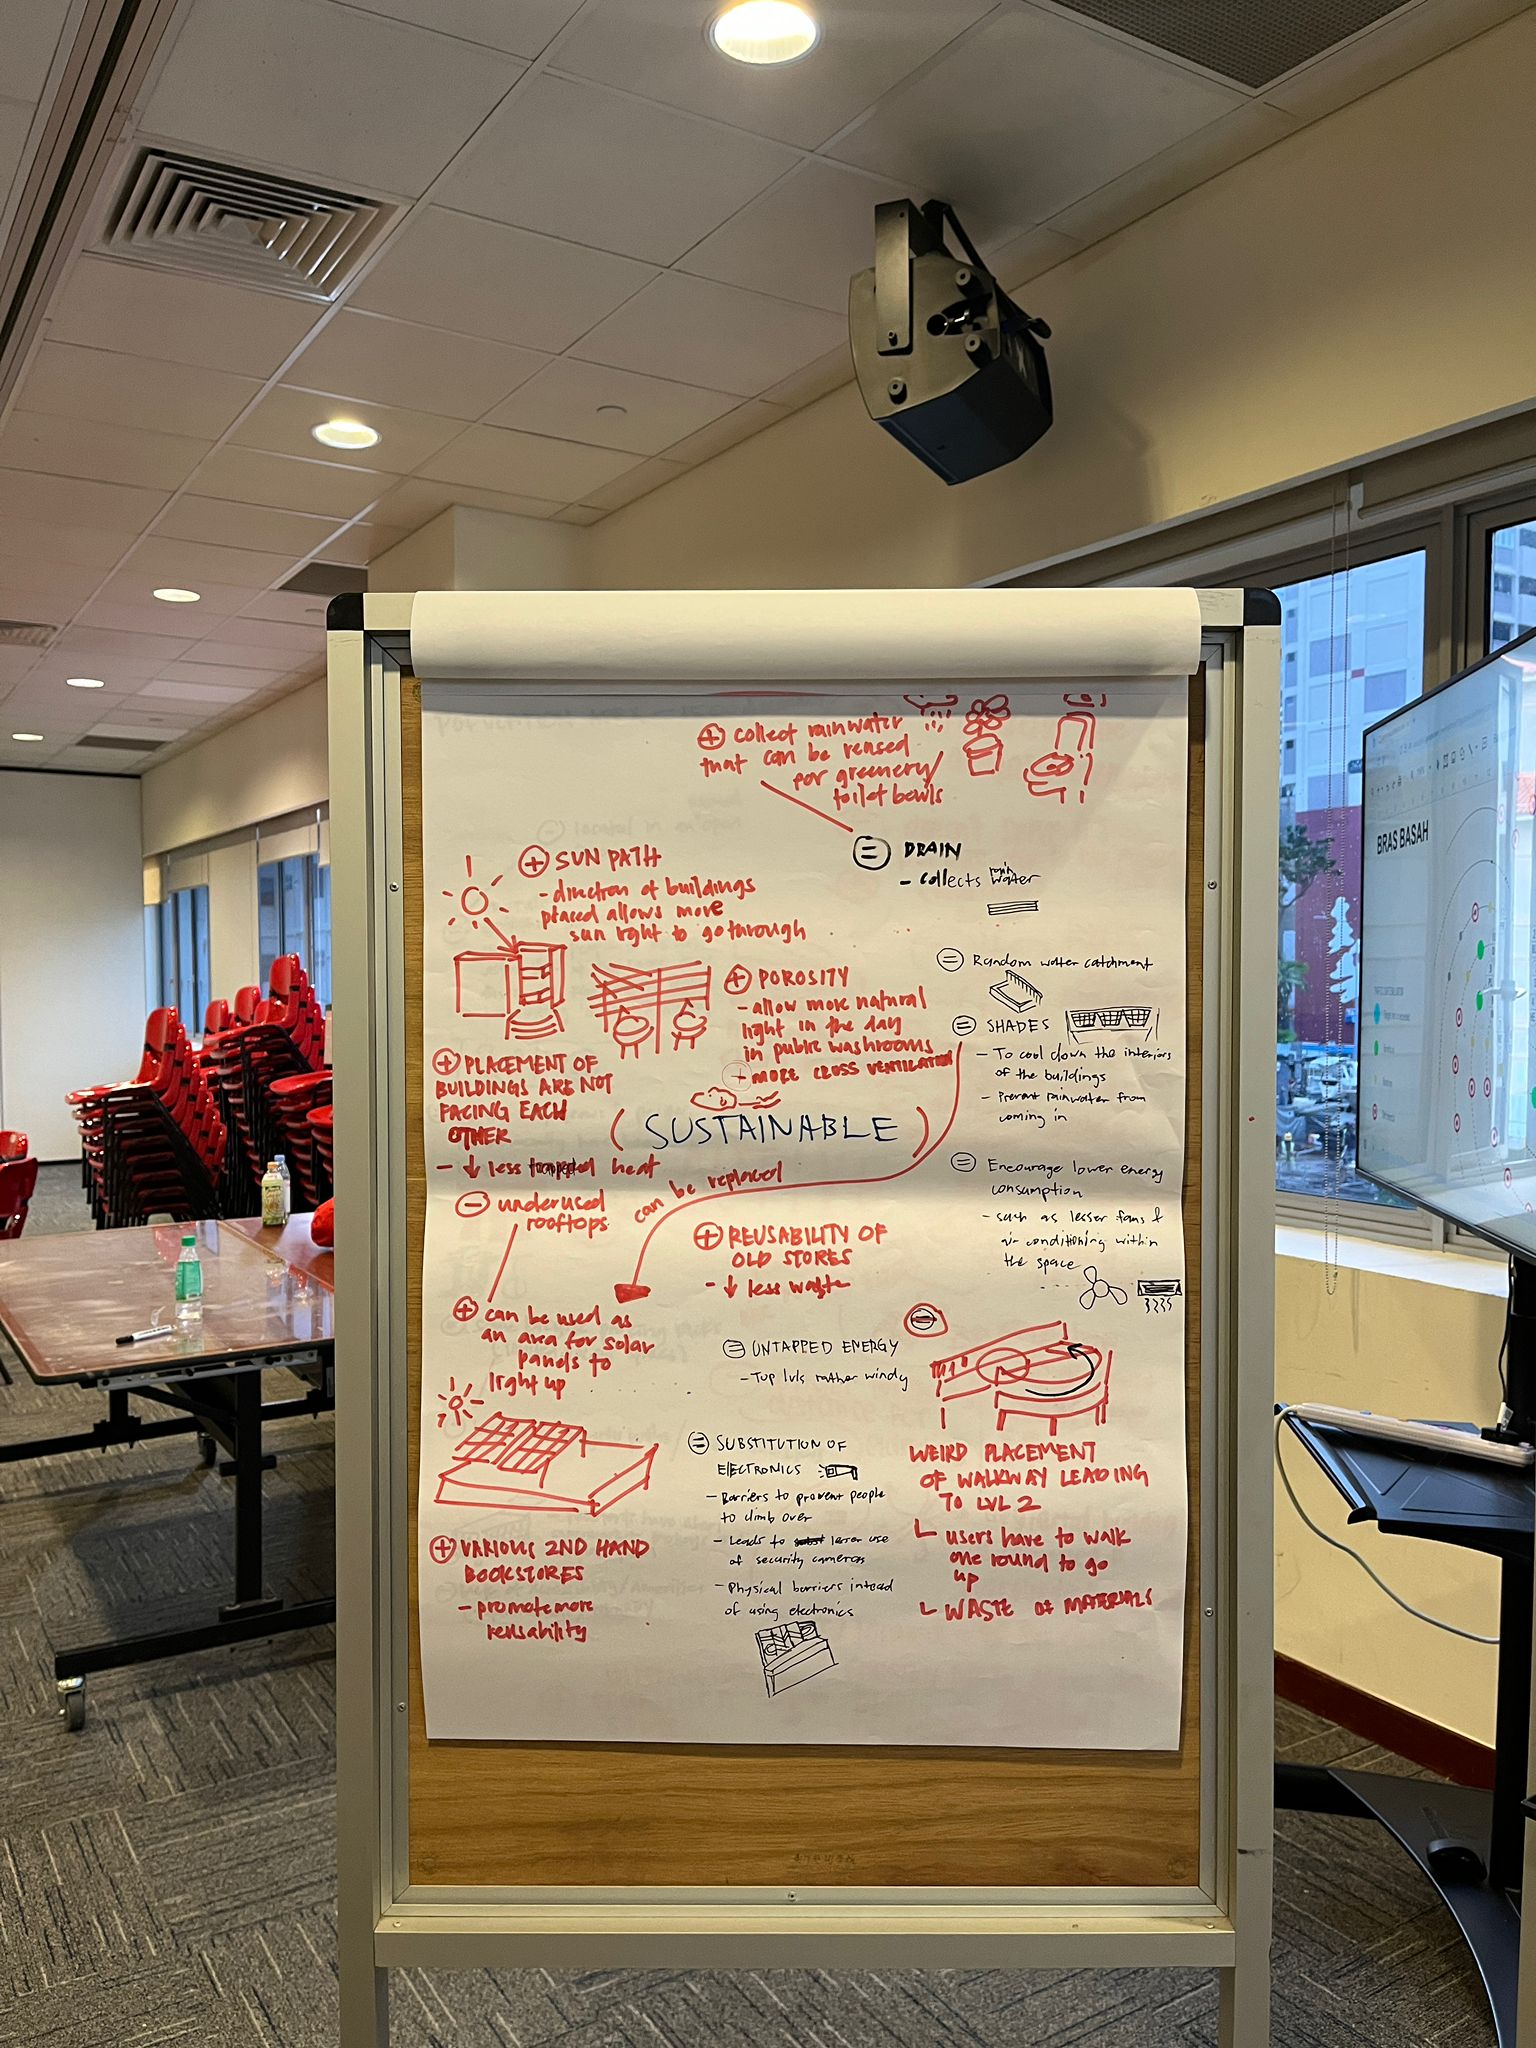 ⊕ collect rainwater
that can be reused
for greenery/
toilet bowls
⊜ DRAIN
- collects rain water
⊕ SUN PATH
- direction of buildings
placed allows more
sun light to go through
⊜ Random water catchment
⊕ POROSITY
- allow more natural
light in the day
in public washrooms
⊕ MORE CROSS VENTILATION
⊜ SHADES
- To cool down the interiors
of the buildings
- Prevent rainwater from
coming in
⊕ PLACEMENT OF
BUILDINGS ARE NOT
FACING EACH
OTHER
- ↓ less trapped heat
(SUSTAINABLE)
can be replaced
⊜ Encourage lower energy
consumption
- such as lesser fans &
air conditioning within
the space
⊖ underused
rooftops
⊕ REUSABILITY OF
OLD STORES
- ↓ less waste
⊕ can be used as
an area for solar
panels to
light up
⊜ UNTAPPED ENERGY
- Top lvls rather windy
⊜ SUBSTITUTION OF
ELECTRONICS
- Barriers to prevent people
to climb over
- Leads to lesser use
of security cameras
- Physical barriers instead
of using electronics
⊖
WEIRD PLACEMENT
OF WALKWAY LEADING
TO LVL 2
└ users have to walk
one round to go
up
└ WASTE OF MATERIALS
⊕ VARIOUS 2ND HAND
BOOKSTORES
- promote more
reusability
BRAS BASAH